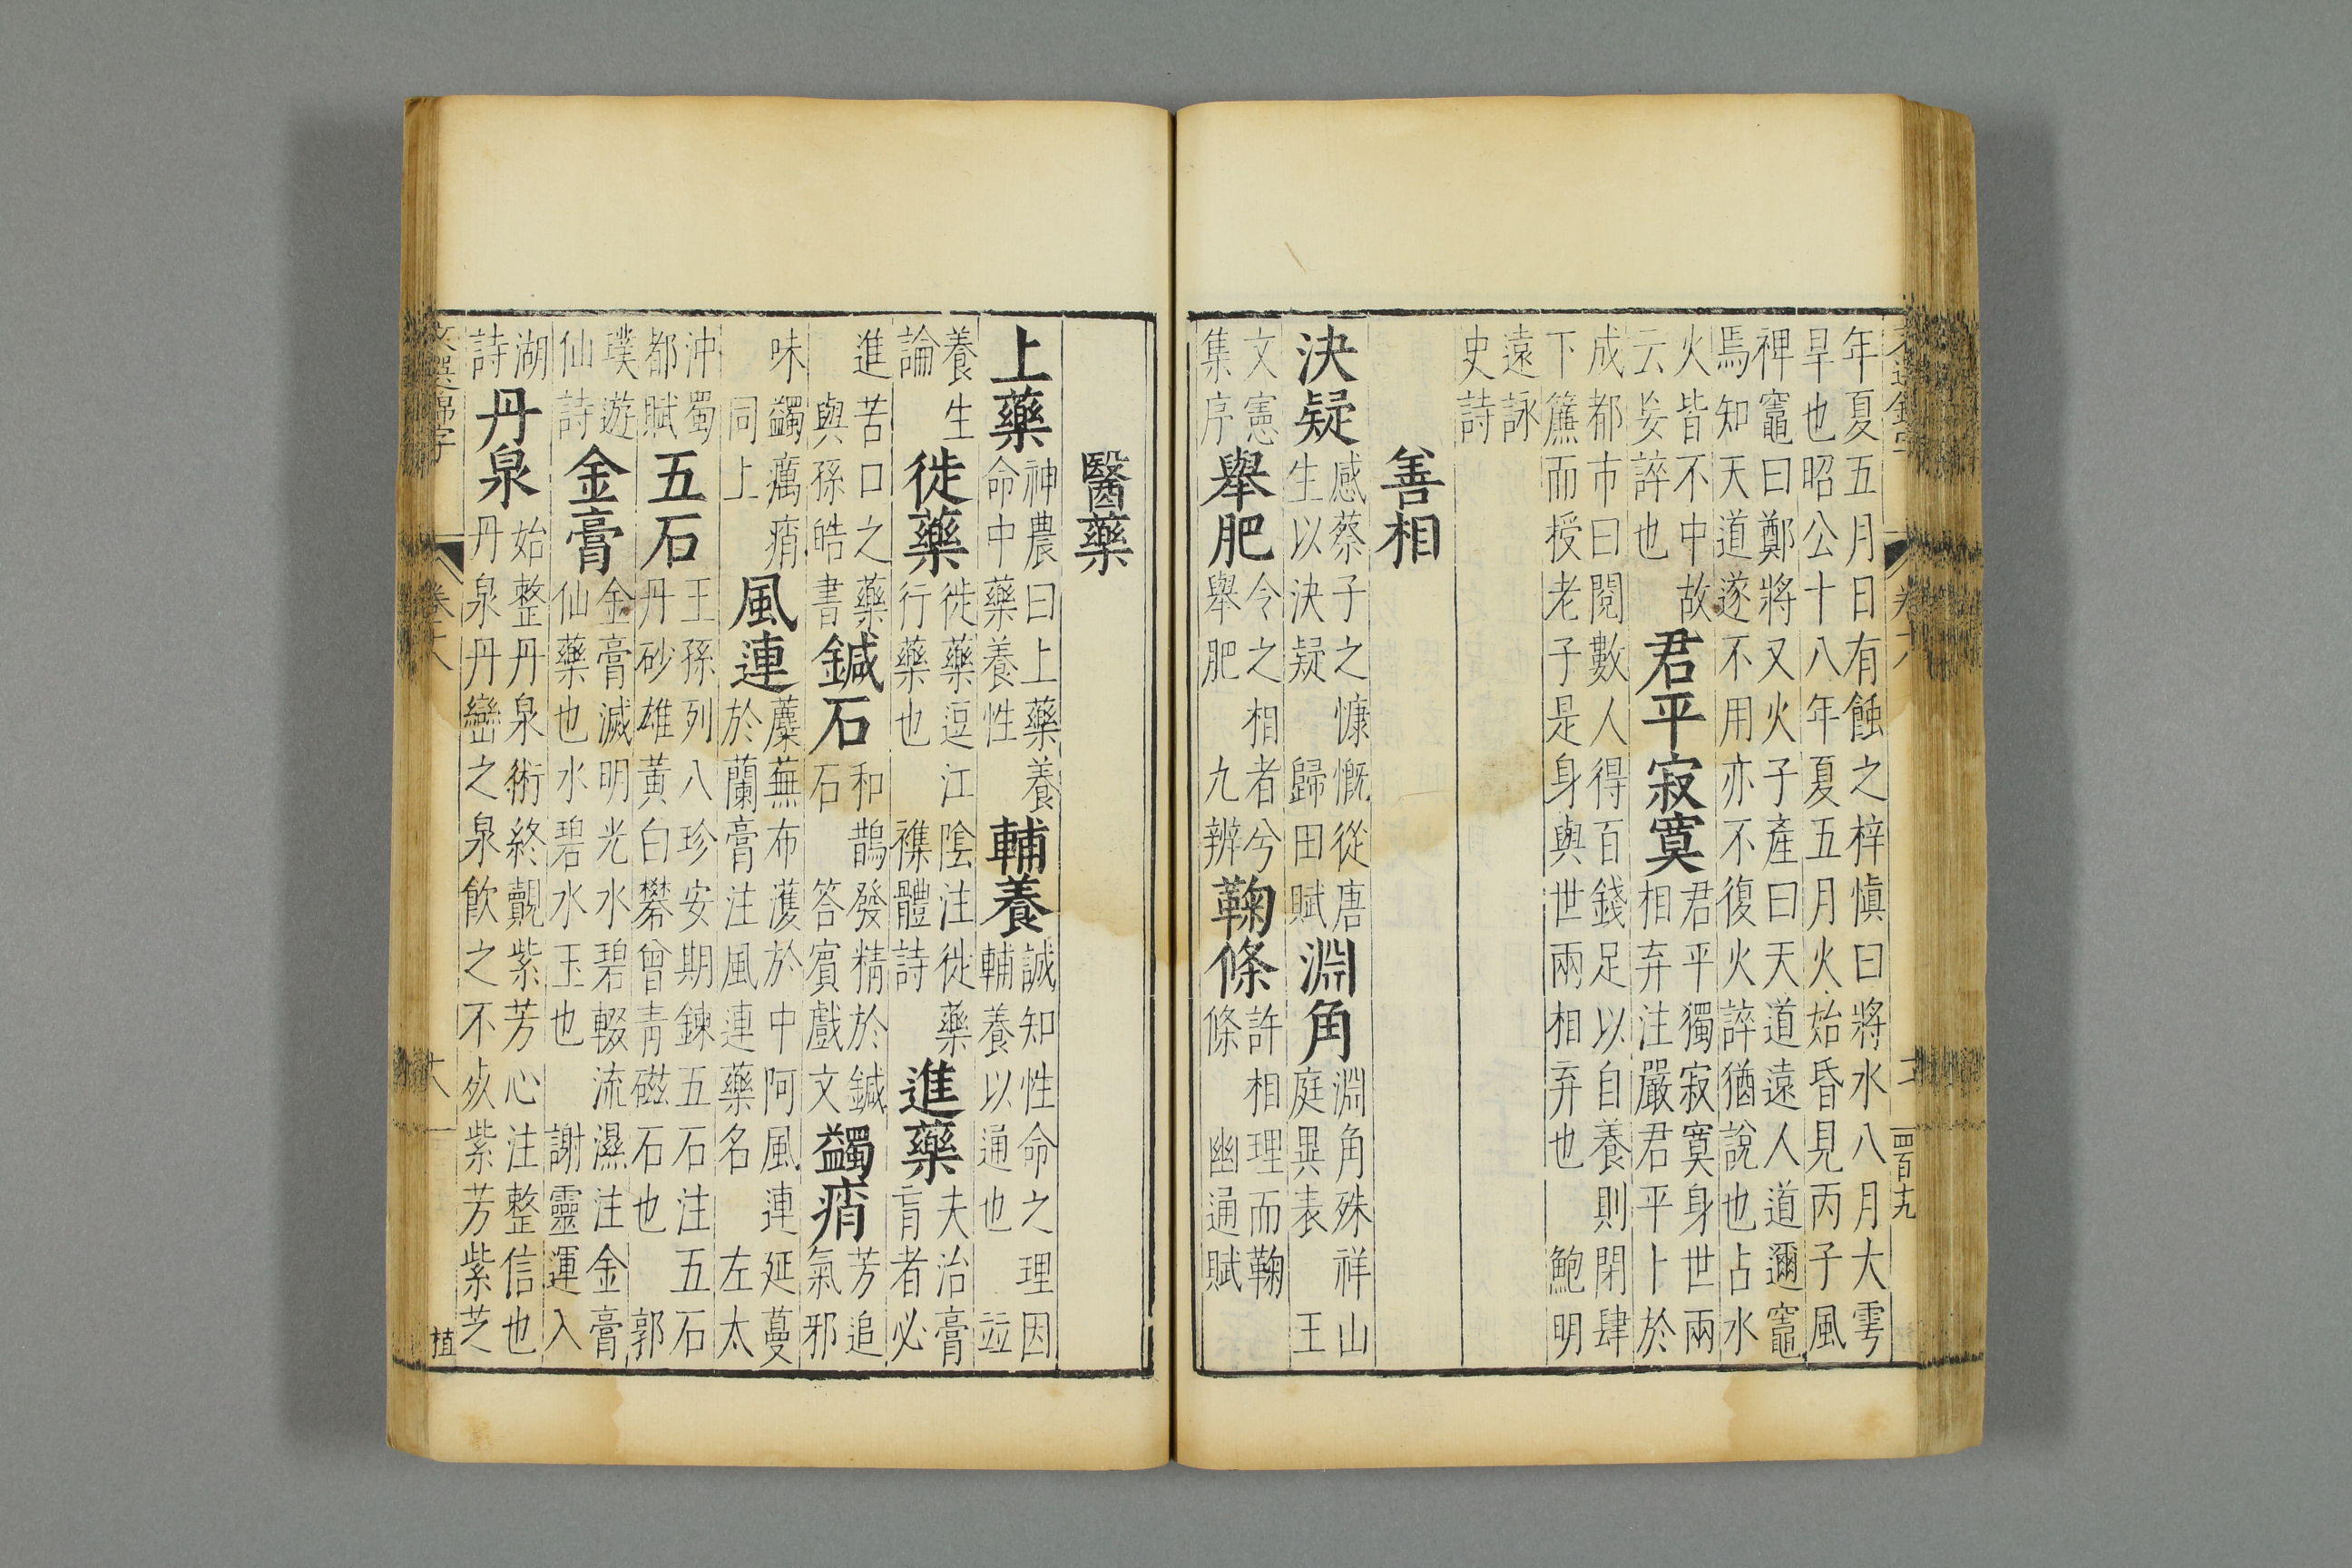 年夏五月日有蝕之梓慎曰將水八月大雩
旱也昭公十八年夏五月火始昏見丙子風
禆竈曰鄭將又火子產曰天道遠人道邇竈
焉知天道遂不用亦不復火誶猶說也占水
火皆不中故
云妄誶也
君平寂寞
君平獨寂寞身世兩
相弃注嚴君平卜於
成都市曰閱數人得百錢足以自養則閉肆
下簾而授老子是身與世兩相弃也 鮑明
遠詠
史詩
善相
決疑
感蔡子之慷慨從唐
生以決疑 歸田賦
淵角
淵角殊祥山
庭異表 王
文憲
集序
舉肥
今之相者兮
舉肥 九辨
鞠條
許相理而鞠
條 幽通賦
四百十九
醫藥
上藥
神農曰上藥養
命中藥養性
輔養
誠知性命之理因
輔養以通也 竝
養生
論
徙藥
徙藥逗江陰注徙藥
行藥也 襍體詩
進藥
夫治膏
肓者必
進苦口之藥
與孫皓書
鍼石
和鵲發精於鍼
石 答賓戲文
蠲痟
芳追
氣邪
味蠲癘痟
同上
風連
蘪蕪布濩於中阿風連延蔓
於蘭膏注風連藥名 左太
沖蜀
都賦
五石
王孫列八珍安期鍊五石注五石
丹砂雄黃白礬曾青磁石也 郭
璞遊
仙詩
金膏
金膏滅明光水碧輟流濕注金膏
仙藥也水碧水玉也 謝靈運入
湖
詩
丹泉
始整丹泉術終覿紫芳心注整信也
丹泉丹巒之泉飲之不死紫芳紫芝
文選錦字
卷十八
植